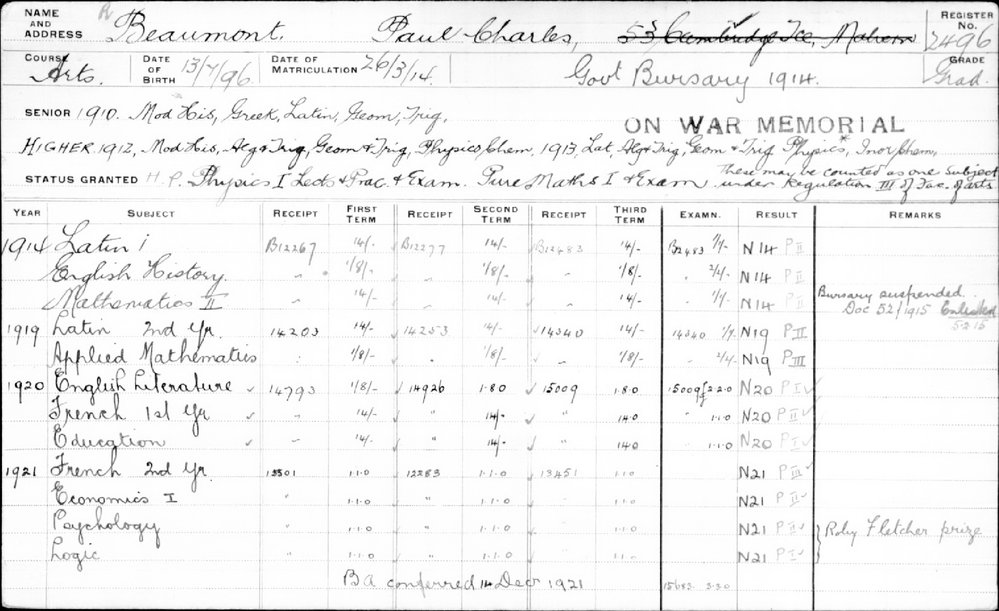 NAME AND ADDRESS Beaumont. Paul Charles, 53, Cambridge Tce, Malvern REGISTER No. 2496
COURSE Arts. DATE OF BIRTH 13/7/96 DATE OF MATRICULATION 26/3/14. Govt Bursary 1914. GRADE Grad.
SENIOR 1910. Mod His, Greek, Latin, Geom, Trig.
ON WAR MEMORIAL
HIGHER 1912, Mod His, Alg & Trig, Geom & Trig, Physics, Chem, 1913, Lat, Alg & Trig, Geom & Trig Physics*, Inor Chem,
STATUS GRANTED H.P. Physics I Lects & Prac. & Exam. Pure Maths I & Exam These may be counted as one subject under Regulation III of Fac. of Arts
YEAR SUBJECT RECEIPT FIRST TERM RECEIPT SECOND TERM RECEIPT THIRD TERM EXAMN. RESULT REMARKS
1914 Latin i B12267 14/- B12277 14/- B12483 14/- B2483 7/- N14 P II
English History. " 1/8/- " 1/8/- " 1/8/- " 2/4/- N14 P II
Mathematics II " 14/- " 14/- " 14/- " 7/- N14 P II Bursary suspended.
Doc 52/1915 Enlisted 5.2.15
1919 Latin 2nd Yr. 14203 14/- 14253 14/- 14340 14/- 14340 1/7. N19 P II
Applied Mathematics 1/8/- 1/8/- " 1/8/- " 2/4/- N19 P III
1920 English Literature ✓ 14793 1/8/- ✓ 14926 1.8.0 ✓ 15009 1.8.0 15009 2.2.0 N20 P I ✓
French 1st Yr ✓ " 14/- ✓ " 14/- ✓ " 14.0 " 1.1.0 N20 P II ✓
Education ✓ " 14/- ✓ " 14/- ✓ " 14.0 " 1.1.0 N20 P I ✓
1921 French 2nd Yr. 1.1.0 12283 1.1.0 13451 1.1.0 N21 P III ✓
Economics I " 1.1.0 " 1.1.0 1.1.0 N21 P II ✓
Psychology " 1.1.0 " 1.1.0 1.1.0 N21 P I ✓ } Roby Fletcher prize
Logic " 1.1.0 1.1.0 1.1.0 N21 P I ✓
BA conferred 14 Decr 1921 15683. 3.3.0